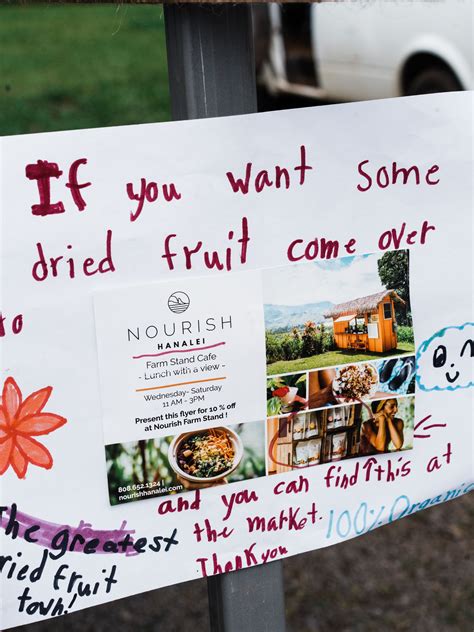 If you want Some
dried fruit come over
to
NOURISH
HANALEI
Farm Stand Cafe
- Lunch with a view -
Wednesday- Saturday
11 AM - 3PM
Present this flyer for 10 % off
at Nourish Farm Stand!
808.652.1324 |
nourishhanalei.com
and you can find this at
the market.
Thank you
100% Organic
The greatest
dried fruit